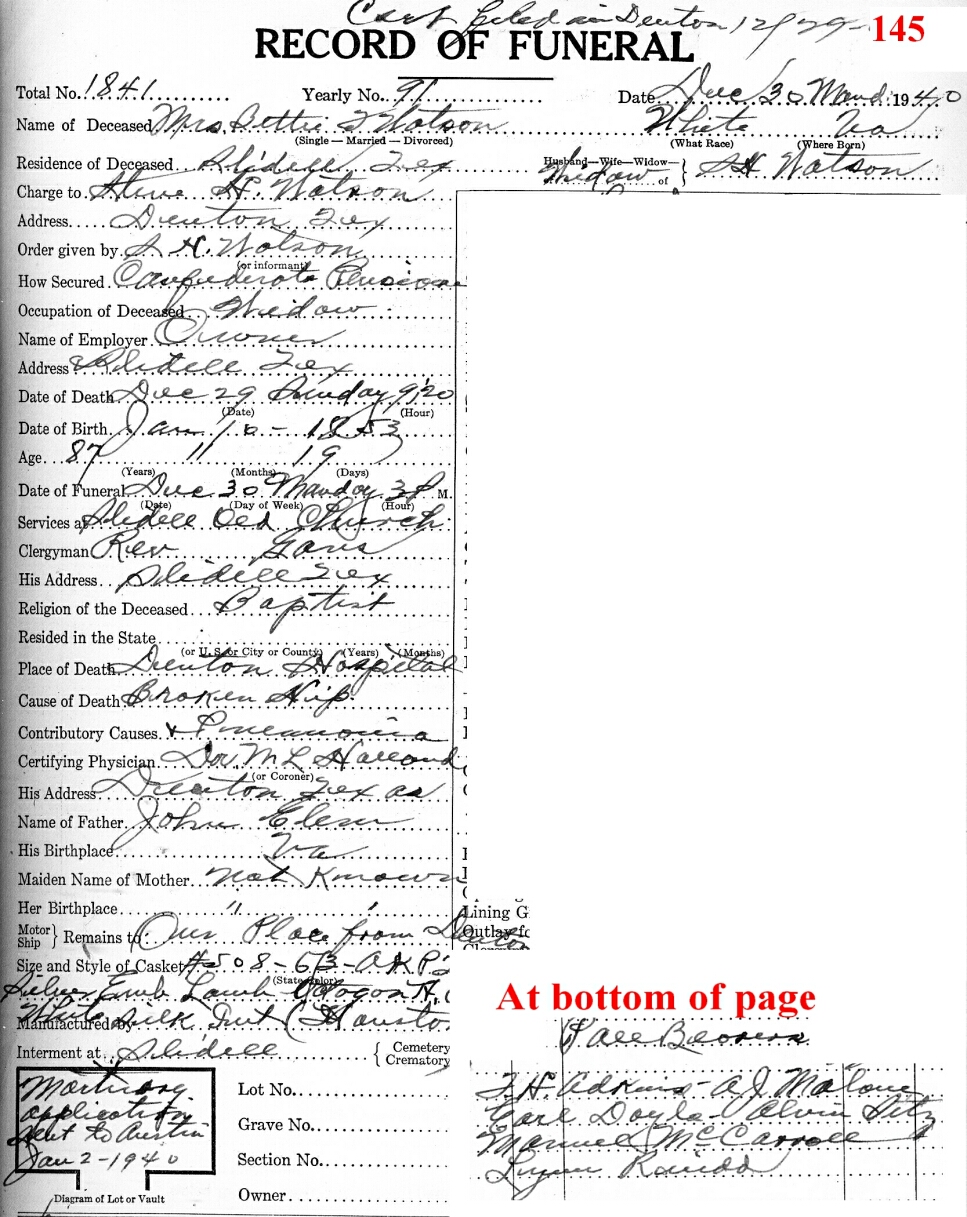 Cert filed in Denton 12/29- 145
RECORD OF FUNERAL
Total No. 1841 Yearly No. 91 Date Dec 30 Mond. 1940
Name of Deceased Mrs Bettie F Watson White Va
(Single — Married — Divorced) (What Race) (Where Born)
Residence of Deceased Slidell Tex Husband—Wife—Widow— of } Widow SH Watson
Charge to Steve H. Watson
Address Denton Tex
Order given by S H. Watson
(or informant)
How Secured Confederate Pension
Occupation of Deceased Widow
Name of Employer Owner
Address Slidell Tex
Date of Death Dec 29 Sunday 9:20
(Date) (Hour)
Date of Birth Jan 10 - 1853
Age 87 11 19
(Years) (Months) (Days)
Date of Funeral Dec 30 Monday 3 P M.
(Date) (Day of Week) (Hour)
Services at Slidell Old Church
Clergyman Rev
His Address Slidell Tex
Religion of the Deceased Baptist
Resided in the State
(or U.S. or City or County) (Years) (Months)
Place of Death Denton Hospital
Cause of Death Broken Hip
Contributory Causes Pneumonia
Certifying Physician Dr. M L Holland
(or Coroner)
His Address Denton Texas
Name of Father John Elem
His Birthplace Va
Maiden Name of Mother Not Known
Her Birthplace " "
Motor Ship } Remains to Our Place from Denton
Lining G
Outlay fo
Size and Style of Casket #508-6/3-O.K.P
(State Color)
Silver Emb Lamb Octogon N.
Manufactured by White Silk Int (Housto
Interment at Slidell { Cemetery Crematory
At bottom of page
Pall Bearers
F. H. Adkins - A J. Malone
Earl Doyle - Alvin Sitz
Manuel McCarroll
Mortuary
application
sent to Austin
Jan 2-1940
Diagram of Lot or Vault
Lot No.
Grave No.
Section No.
Owner